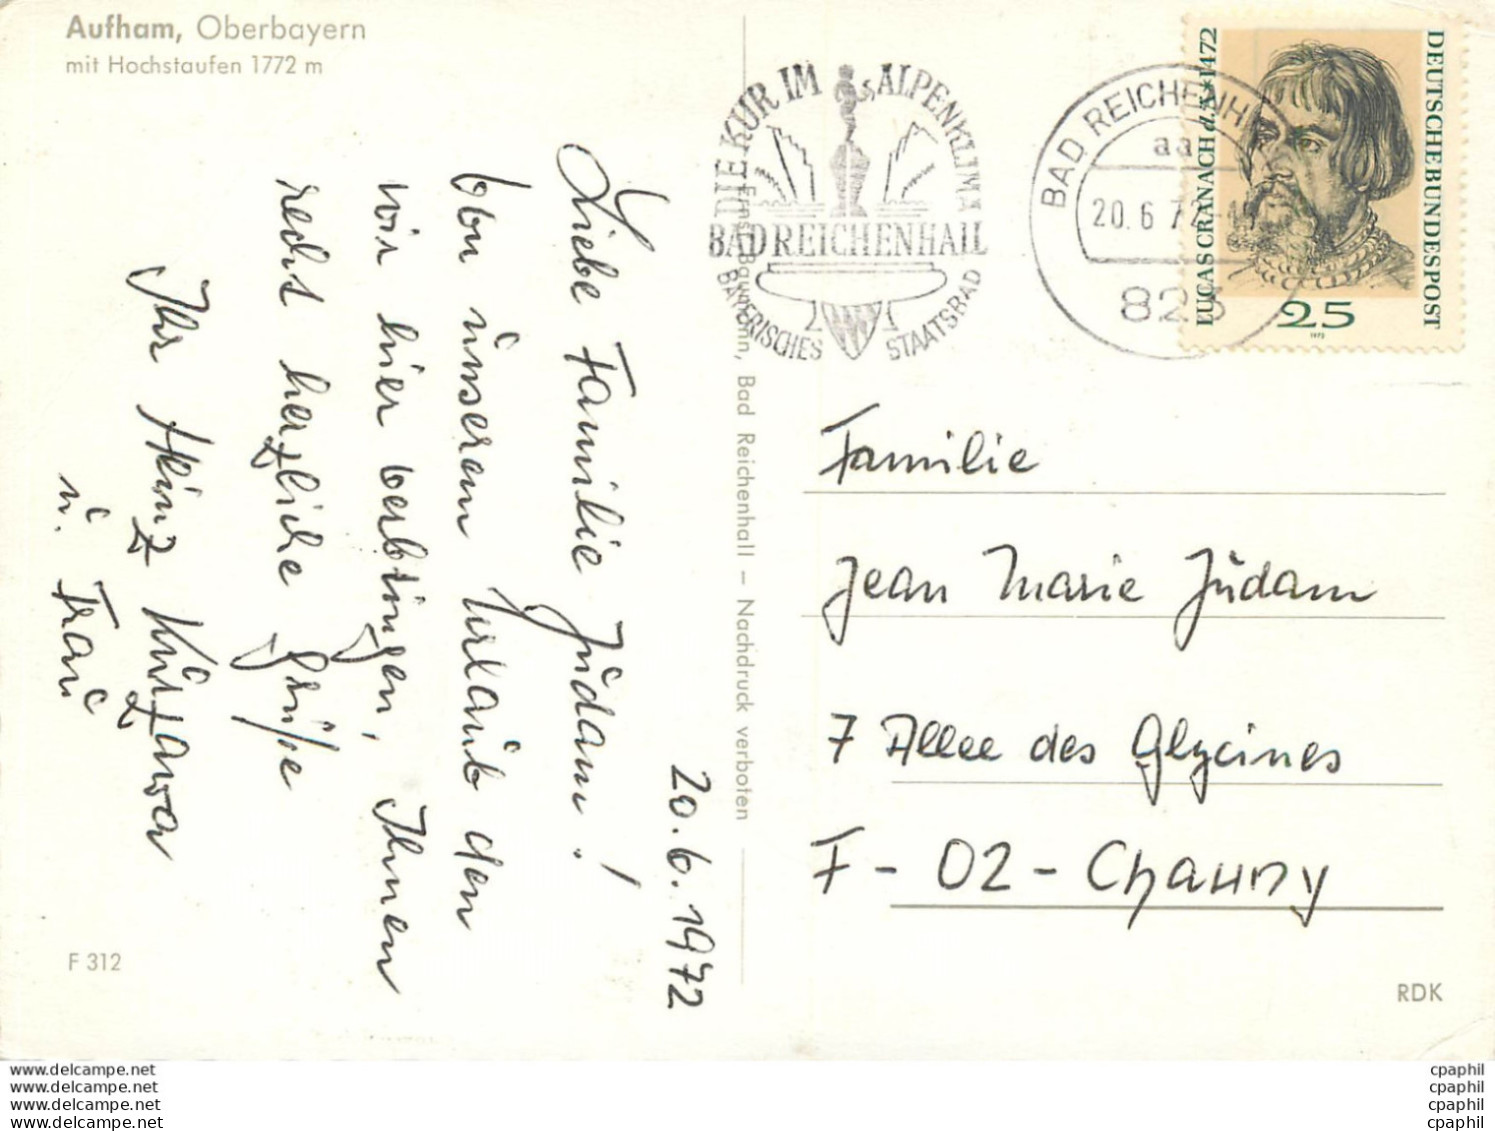 Aufham, Oberbayern
mit Hochstaufen 1772 m
20.6.1972
Liebe Familie Jŭdam!
Von ŭnserem Urlaŭb den
wir hier verbringen, Ihnen
recht herzliche Grüße
Ihr Heinz Kŭrzawa
ŭ. Fraŭ
F 312
Ernst Baumann, Bad Reichenhall – Nachdruck verboten
DIE KUR IM ALPENKLIMA
BAD REICHENHALL
BAYERISCHES STAATSBAD
BAD REICHENH
aa
20.6.72-15
823
LUCAS CRANACH d.Ä.*1472
DEUTSCHE BUNDESPOST
25
1972
Familie
Jean Marie Jŭdam
7 Allee des Glycines
F - 02 - Chauny
RDK
www.delcampe.net
www.delcampe.net
www.delcampe.net
www.delcampe.net
cpaphil
cpaphil
cpaphil
cpaphil